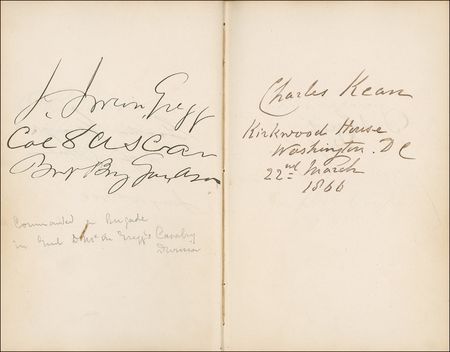 J. Irvin Gregg
Col 8 US Cav
Bvt Brig Gen
Commanded a Brigade
in Genl D. McM. Gregg's Cavalry
Division
Charles Kean
Kirkwood House
Washington. DC
22nd March
1866